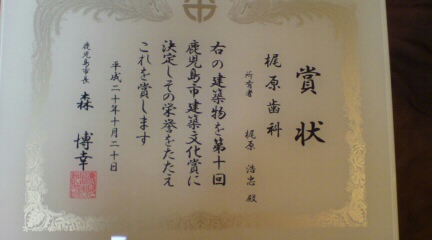 賞状
梶原歯科
所有者 梶原 浩忠 殿
右の建築物を第十回
鹿児島市建築文化賞に
決定しその栄誉をたたえ
これを賞します
平成二十年十月二十日
鹿児島市長 森 博幸